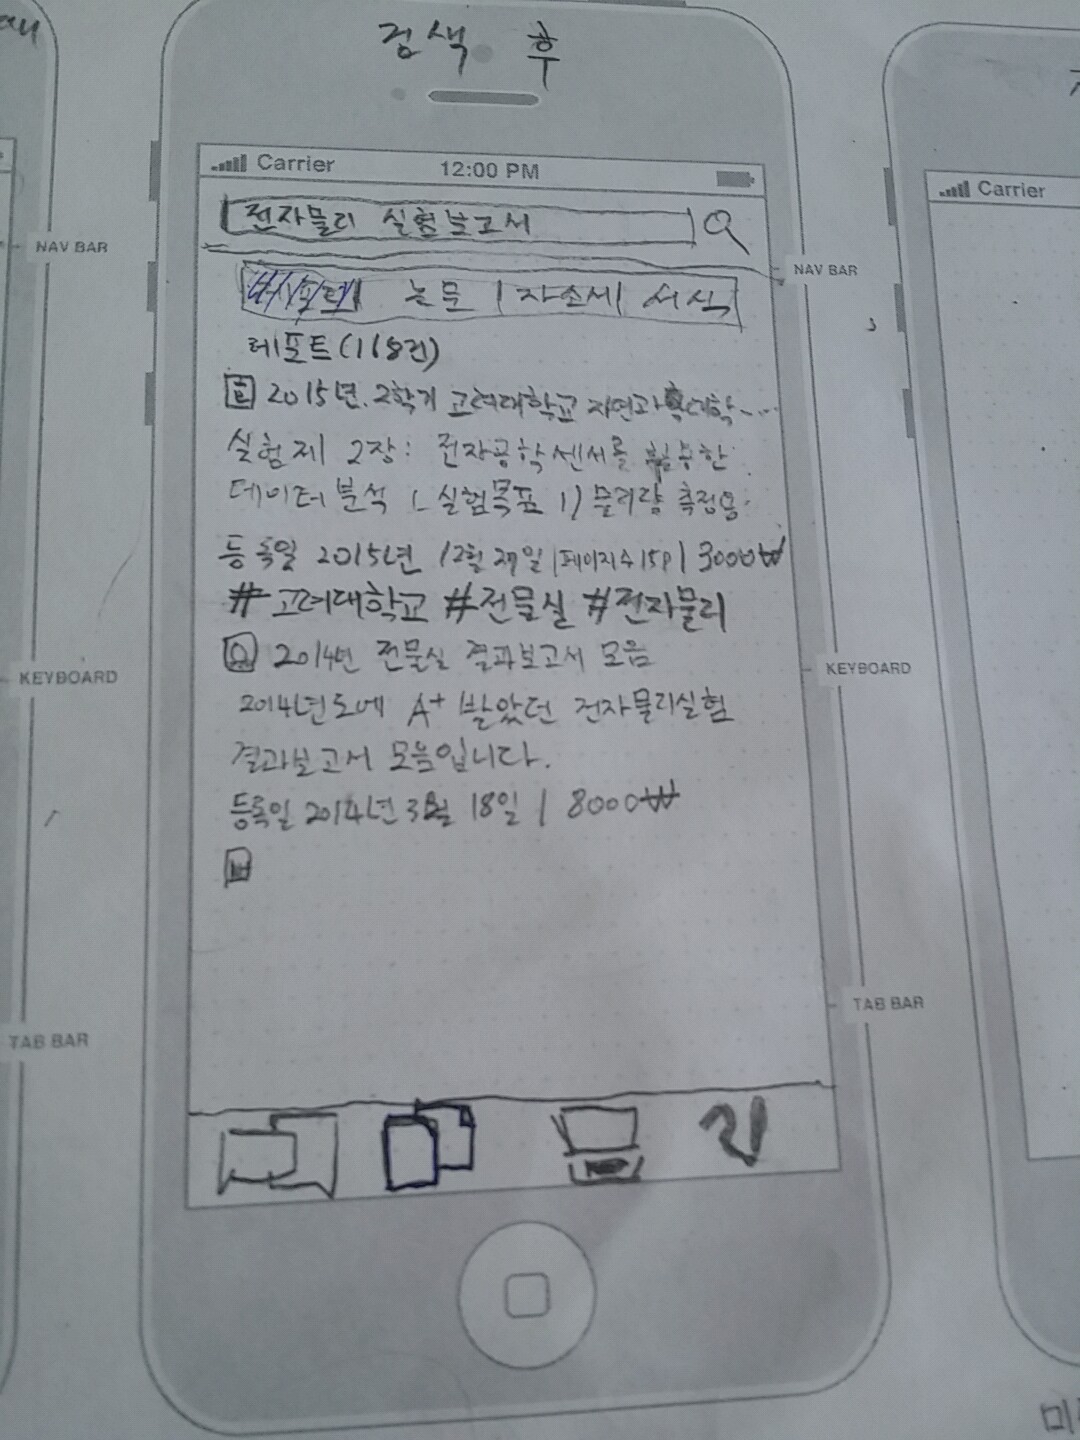 검색 후
Carrier 12:00 PM
전자물리 실험보고서
레포트 | 논문 | 자소서 | 서식
레포트(118건)
2015년 2학기 고려대학교 자연과학대학...
실험제 2장: 전자공학센서를 활용한
데이터 분석 1. 실험목표 1) 물리량 측정용
등록일 2015년 12월 29일 | 페이지수 15p | 3000₩
#고려대학교 #전물실 #전자물리
2014년 전물실 결과보고서 모음
2014년도에 A+ 받았던 전자물리실험
결과보고서 모음입니다.
등록일 2014년 3월 18일 | 8000₩
NAV BAR
KEYBOARD
TAB BAR
NAV BAR
KEYBOARD
TAB BAR
Carrier